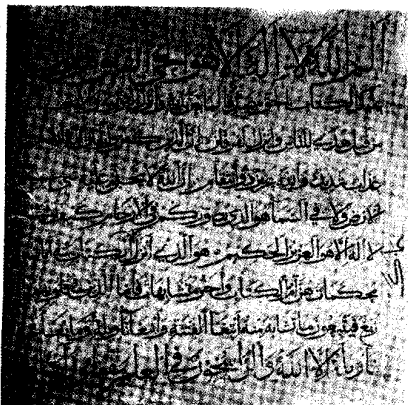 الم الله لا اله الا هو الحي القيوم
عليك الكتاب بالحق مصدقا لما بين يديه وانزل
من قبل هدى للناس وانزل الفرقان ان الذين كفروا
عذاب شديد والله عزيز ذو انتقام ان الله لا يخفى عليه
الارض ولا في السما هو الذي يصوركم في الارحام كيف
لا اله الا هو العزيز الحكيم هو الذي انزل عليك الكتاب منه
محكمات هن ام الكتاب واخر متشابهات فاما الذين في قلوبهم
زيغ فيتبعون ما تشابه منه ابتغا الفتنة وابتغا تاويله وما يعلم
تاويله الا الله والراسخون في العلم